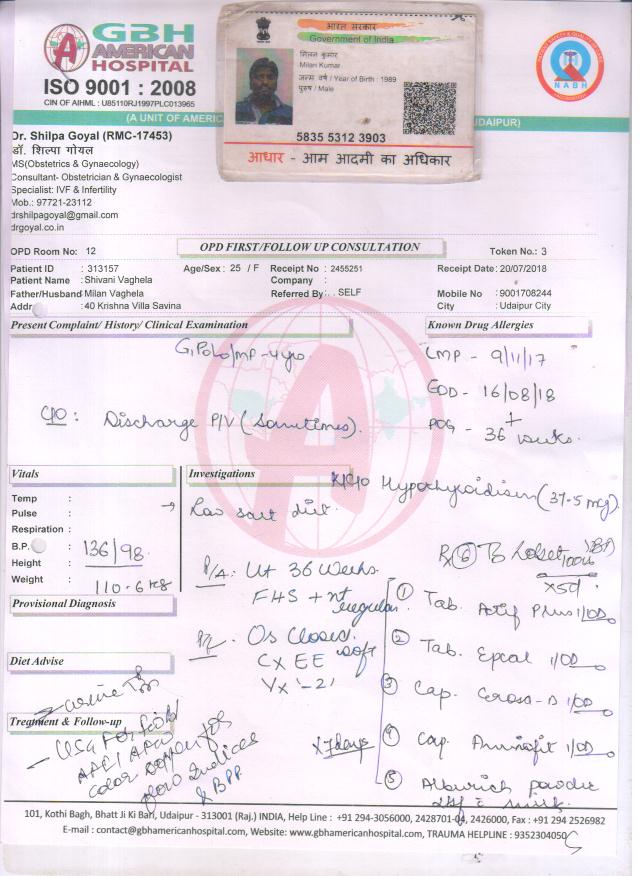 GBH
AMERICAN
HOSPITAL
ISO 9001 : 2008
CIN OF AIHML : U85110RJ1997PLC013965
(A UNIT OF AMERIC
UDAIPUR)
भारत सरकार
Government of India
मिलन कुमार
Milan Kumar
जन्म वर्ष / Year of Birth : 1989
पुरुष / Male
5835 5312 3903
आधार - आम आदमी का अधिकार
NABH
Dr. Shilpa Goyal (RMC-17453)
डॉ. शिल्पा गोयल
MS(Obstetrics & Gynaecology)
Consultant- Obstetrician & Gynaecologist
Specialist: IVF & Infertility
Mob.: 97721-23112
drshilpagoyal@gmail.com
drgoyal.co.in
OPD Room No: 12 OPD FIRST/FOLLOW UP CONSULTATION Token No.: 3
Patient ID : 313157 Age/Sex : 25 / F Receipt No : 2455251 Receipt Date: 20/07/2018
Patient Name : Shivani Vaghela Company :
Father/Husband Milan Vaghela Referred By: . . SELF Mobile No : 9001708244
Addr : 40 Krishna Villa Savina City : Udaipur City
Present Complaint/ History/ Clinical Examination Known Drug Allergies
G1P0L0/MP-4yrs. LMP - 9/11/17
EDD - 16/08/18
C/O : Discharge P/V (Sometimes). POG - 36+ weeks.
Vitals Investigations
K/C/O Hypothyroidism (37.5 mcg)
Temp :
Pulse : → Low salt diet.
Respiration :
B.P. : 136/98
Height :
Weight : 110.6 kg
P/A: Ut 36 Weeks.
FHS + nt regular.
Rx ⑥ Tb Lobet 100mg (BD)
x5d
Provisional Diagnosis
① Tab. Actif Plus 1/OD
Os Closed.
soft
CX EE
Vx -2
② Tab. Epcal 1/OD
Diet Advise
③ Cap. 1/OD
- urine
Treatment & Follow-up
- USG For
AFI
color doppler for
flow Indices
& BPP.
x7days
④ Cap. 1/OD
⑤ powder
milk.
101, Kothi Bagh, Bhatt Ji Ki Bari, Udaipur - 313001 (Raj.) INDIA, Help Line : +91 294-3056000, 2428701-04, 2426000, Fax : +91 294 2526982
E-mail : contact@gbhamericanhospital.com, Website: www.gbhamericanhospital.com, TRAUMA HELPLINE : 9352304050